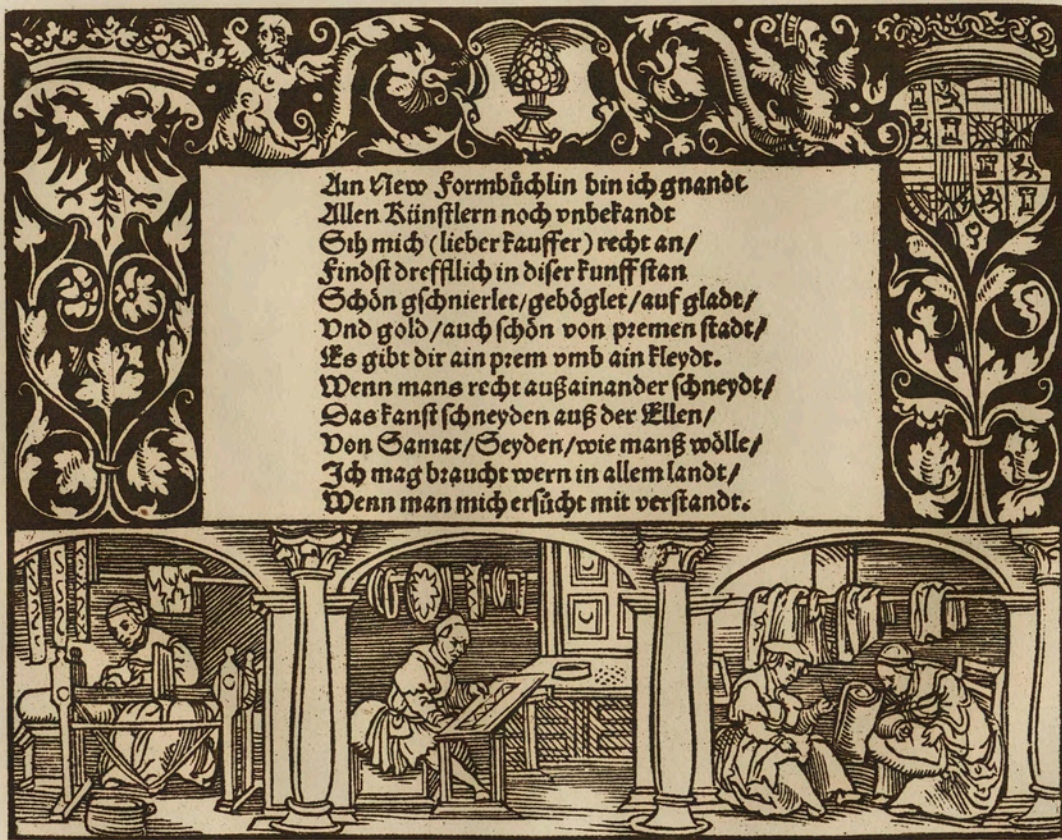 Ain New Formbůchlin bin ich gnandt
Allen Künstlern noch vnbekandt
Sih mich (lieber kauffer) recht an/
Findst drefflich in diser kunst stan
Schön gschnierlet/geböglet/auf gladt/
Vnd gold/auch schön von premen stadt/
Es gibt dir ain prem vmb ain kleydt.
Wenn mans recht außainander schneydt/
Das kanst schneyden auß der Ellen/
Von Samat/Seyden/wie manß wölle/
Ich mag braucht wern in allem landt/
Wenn man mich ersůcht mit verstandt.